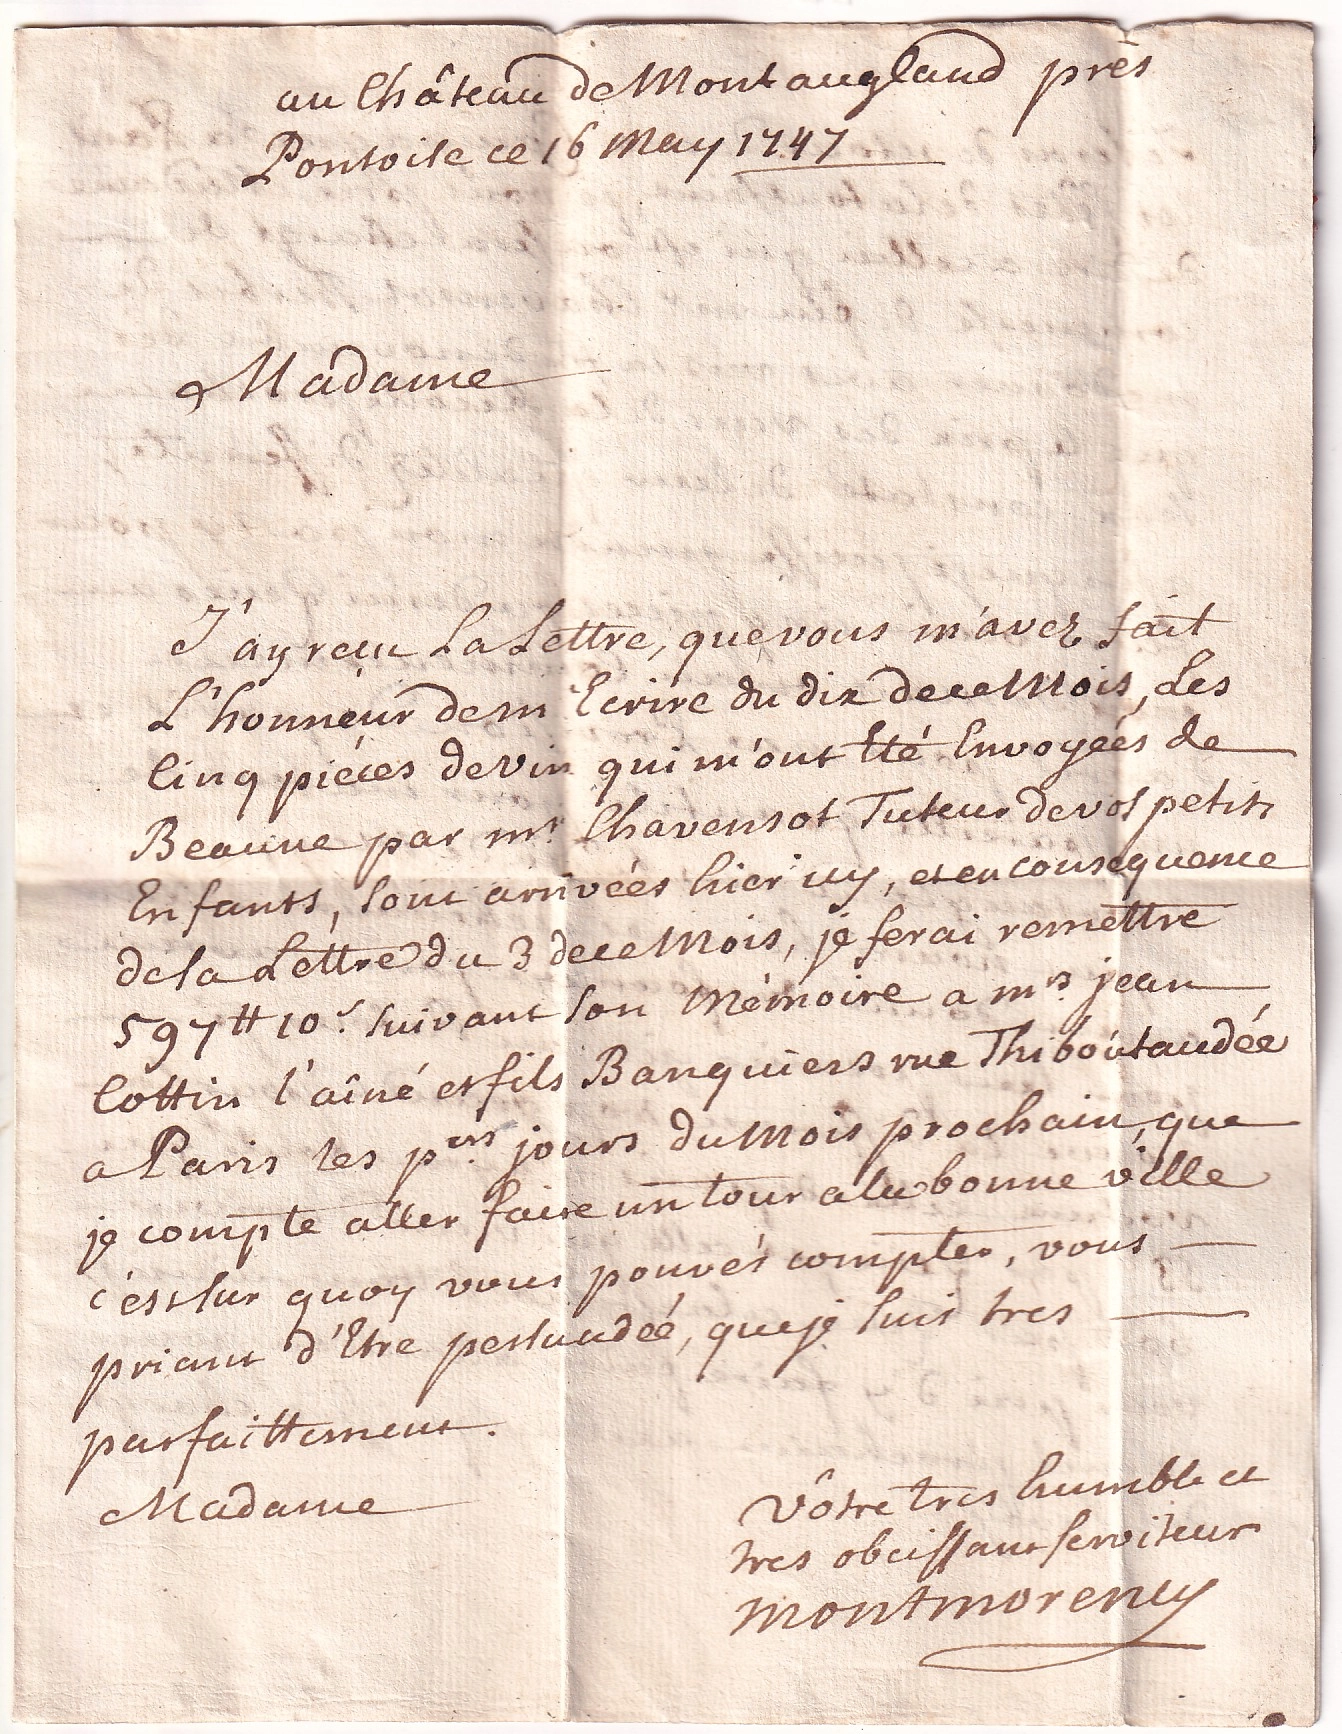 au Château de Montaugland près
Pontoise ce 16 May 1747
Madame
J'ay reçu La Lettre, que vous m'avez fait
L'honneur de m'Ecrire du dix de ce Mois, Les
Cinq piéces de vin qui m'ont Eté Envoyées de
Beaune par mr. Chavensot Tuteur de vos petits
Enfants, sont arrivées hier icy, et en consequence
de la Lettre du 3 de ce Mois, je ferai remettre
597 tt 10 s. suivant son Mémoire a mrs jean
Cottin l'aîné et fils Banquiers rue Thiboutaudée
a Paris les pers jours du Mois prochain, que
je compte aller faire un tour a la bonne ville
c'est sur quoy vous pouvés compter, vous
priant d'Etre persuadée, que je suis tres
parfaittement.
Madame
Vôtre tres humble et
tres obeissant serviteur
Montmorency